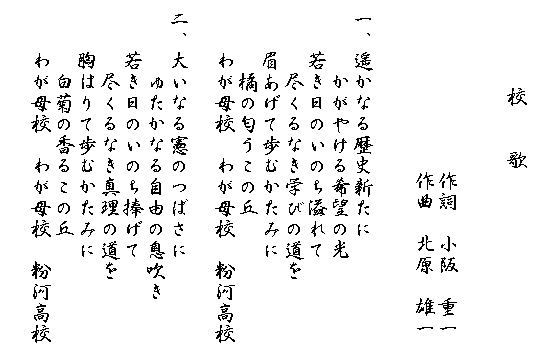 校 歌
作詞 小阪 重一
作曲 北原 雄一
一、遥かなる歴史新たに
かがやける希望の光
若き日のいのち溢れて
尽くるなき学びの道を
眉あげて歩むかたみに
橘の匂うこの丘
わが母校 わが母校 粉河高校
二、大いなる憲のつばさに
ゆたかなる自由の息吹き
若き日のいのち捧げて
尽くるなき真理の道を
胸はりて歩むかたみに
白菊の香るこの丘
わが母校 わが母校 粉河高校